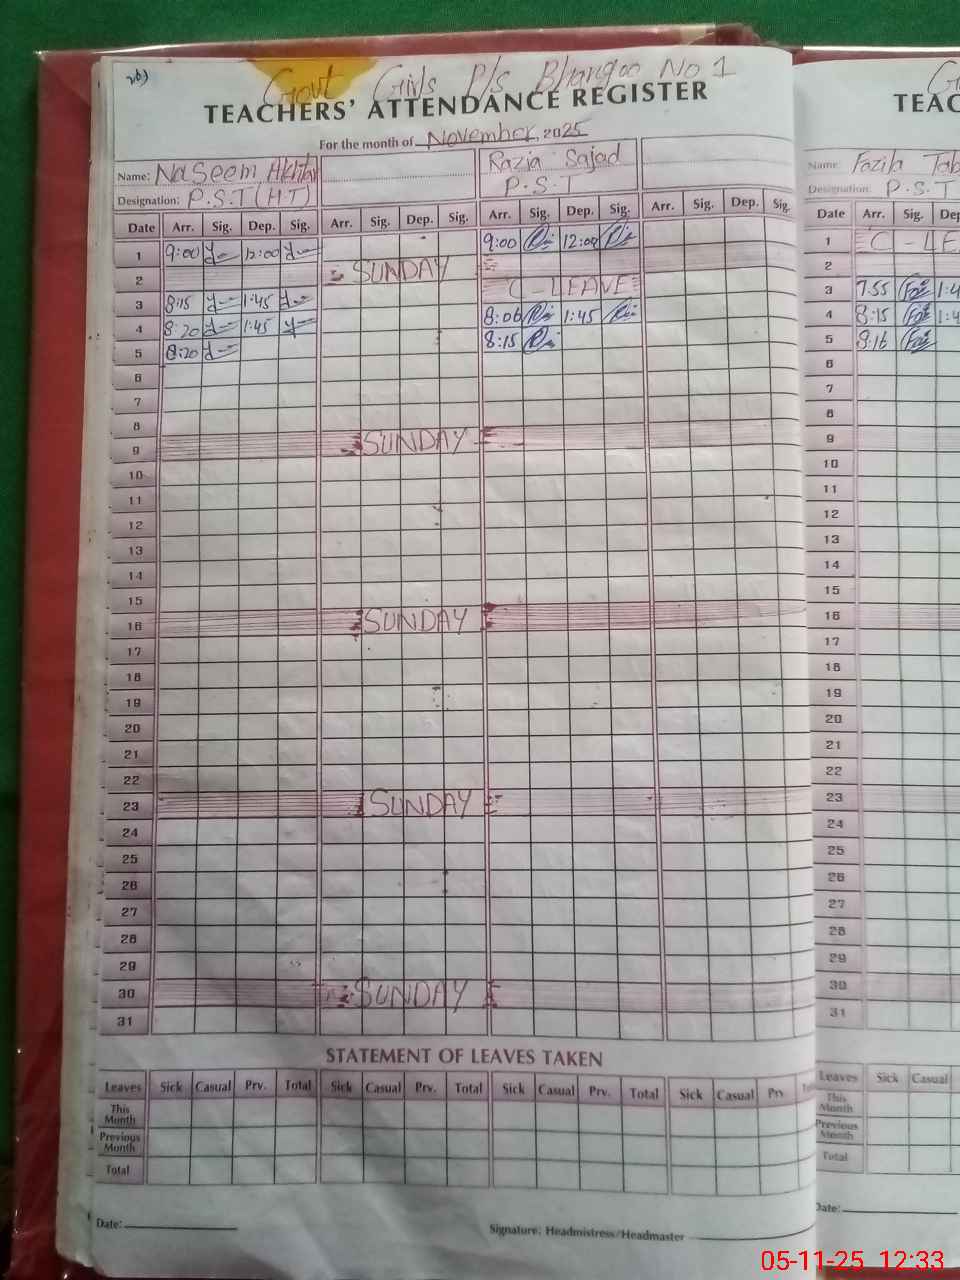 Govt Girls P/s Bhangoo No 1
TEACHERS' ATTENDANCE REGISTER
For the month of November, 2025
Name: Naseem Akhtar
Designation: P.S.T (H.T)
Razia Sajad
P.S.T
Date Arr. Sig. Dep. Sig. Arr. Sig. Dep. Sig. Arr. Sig. Dep. Sig. Arr. Sig. Dep. Sig.
1 9:00 12:00 9:00 12:00
2 SUNDAY
3 8:15 1:45 C-LEAVE
4 8:20 1:45 8:06 1:45
5 8:20 8:15
6
7
8
9 SUNDAY
10
11
12
13
14
15
16 SUNDAY
17
18
19
20
21
22
23 SUNDAY
24
25
26
27
28
29
30 SUNDAY
31
STATEMENT OF LEAVES TAKEN
Leaves Sick Casual Prv. Total Sick Casual Prv. Total Sick Casual Prv. Total Sick Casual Prv.
This Month
Previous Month
Total
Date:
Signature: Headmistress/Headmaster
TEAC
Name: Fozila Tab
Designation: P.S.T
Date Arr. Sig. Dep
1 C-LE
2
3 7.55 1:4
4 8:15 1:4
5 8:16
6
7
8
9
10
11
12
13
14
15
16
17
18
19
20
21
22
23
24
25
26
27
28
29
30
31
Leaves Sick Casual
This Month
Previous Month
Total
Date:
05-11-25 12:33